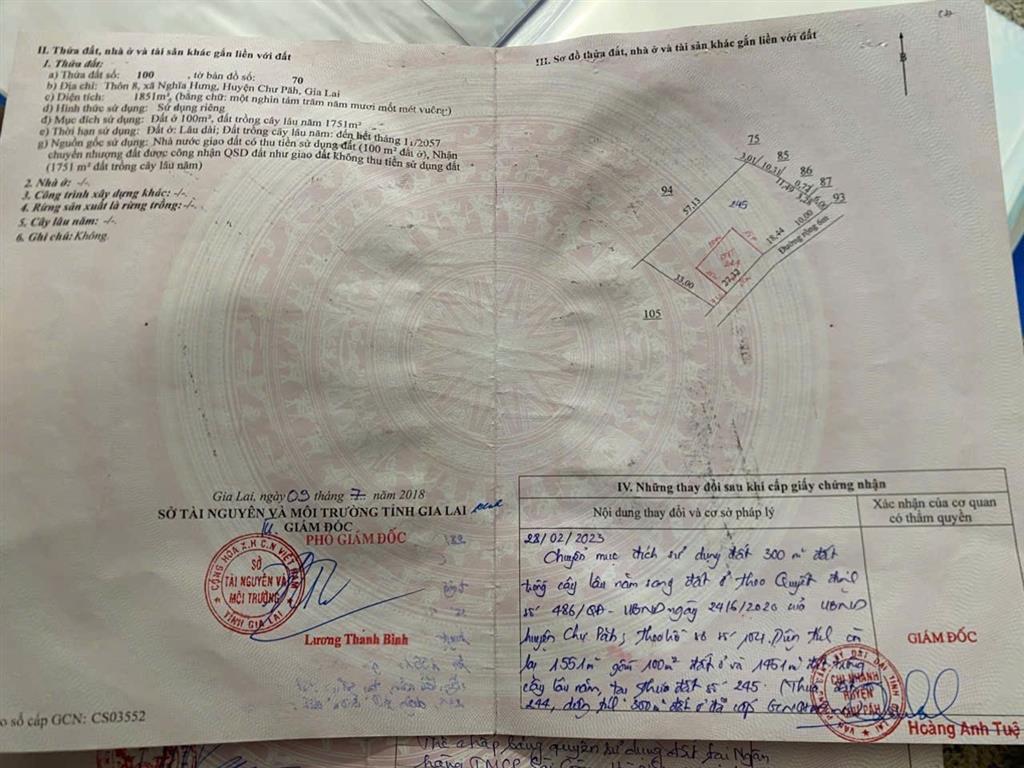 II. Thửa đất, nhà ở và tài sản khác gắn liền với đất
1. Thửa đất:
a) Thửa đất số: 100 , tờ bản đồ số: 70
b) Địa chỉ: Thôn 8, xã Nghĩa Hưng, Huyện Chư Păh, Gia Lai
c) Diện tích: 1851m², (bằng chữ: một nghìn tám trăm năm mươi mốt mét vuông)
d) Hình thức sử dụng: Sử dụng riêng
đ) Mục đích sử dụng: Đất ở 100m², đất trồng cây lâu năm 1751m²
e) Thời hạn sử dụng: Đất ở: Lâu dài; Đất trồng cây lâu năm: đến hết tháng 11/2057
g) Nguồn gốc sử dụng: Nhà nước giao đất có thu tiền sử dụng đất (100 m² đất ở), Nhận
chuyển nhượng đất được công nhận QSD đất như giao đất không thu tiền sử dụng đất
(1751 m² đất trồng cây lâu năm)
2. Nhà ở: -/-
3. Công trình xây dựng khác: -/-
4. Rừng sản xuất là rừng trồng: -/-
5. Cây lâu năm: -/-
6. Ghi chú: Không.
Gia Lai, ngày 09 tháng 7 năm 2018
SỞ TÀI NGUYÊN VÀ MÔI TRƯỜNG TỈNH GIA LAI
GIÁM ĐỐC
PHÓ GIÁM ĐỐC
CỘNG HÒA X.H.C.N VIỆT NAM
SỞ
TÀI NGUYÊN VÀ
MÔI TRƯỜNG
TỈNH GIA LAI
Lương Thanh Bình
o sổ cấp GCN: CS03552
III. Sơ đồ thửa đất, nhà ở và tài sản khác gắn liền với đất
B
75
3,01 85
10,31 86
11,49 0,72 87
93
94
57,13
245
10,00
18,44
Đường rộng 6m
27,32
33,00
105
IV. Những thay đổi sau khi cấp giấy chứng nhận
Nội dung thay đổi và cơ sở pháp lý
Xác nhận của cơ quan
có thẩm quyền
28/02/2023
Chuyển mục đích sử dụng đất 300 m² đất
trồng cây lâu năm sang đất ở theo Quyết định
số 486/QĐ-UBND ngày 24/6/2020 của UBND
huyện Chư Păh; theo hồ sơ số Diện tích còn
lại 1551m² gồm 100m² đất ở và 1451m² đất trồng
cây lâu năm, tại thửa đất số 245. (Thửa đất
244, diện tích 300m² đất ở đã cấp GCN
GIÁM ĐỐC
CHI NHÁNH
HUYỆN
CHƯ PĂH
Hoàng Anh Tuệ
Thế chấp bằng quyền sử dụng đất tại Ngân
hàng TMCP